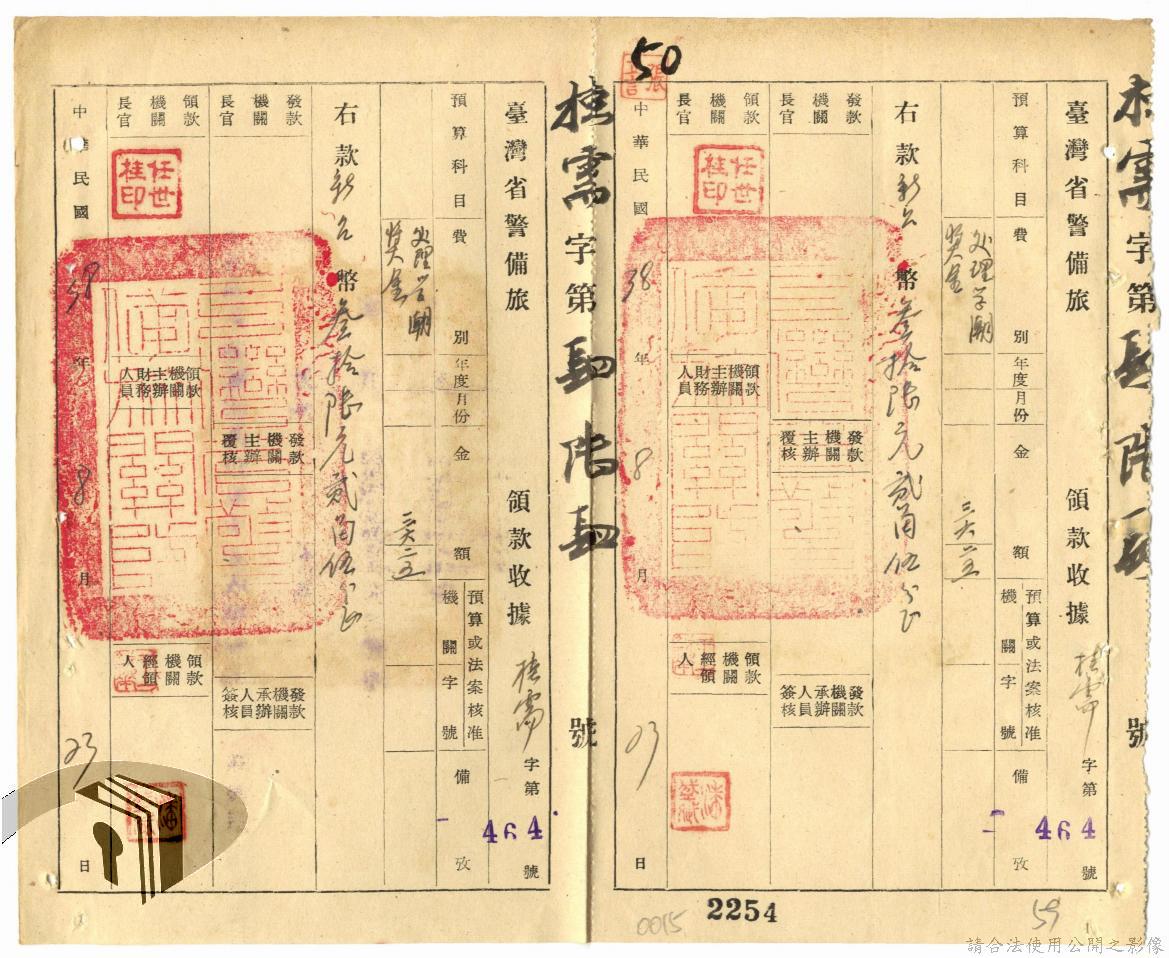 50
桂需字第肆陸肆號
臺灣省警備旅
領款收據
桂需字第464號
預算科目
費別
年度月份
金額
預算或法案核准
機關字號
備攷
处理学潮
奖金
右款新台幣叁拾陸元貳角伍分正
發款機關長官
發款機關主辦覆核
發款機關承辦人員簽核
領款機關長官
任世桂印
領款機關主辦財務人員
領款機關經領人
中華民國38年8月23日
桂需字第肆陸肆號
臺灣省警備旅
領款收據
桂需字第464號
預算科目
費別
年度月份
金額
預算或法案核准
機關字號
備攷
处理学潮
奖金
右款新台幣叁拾陸元貳角伍分正
發款機關長官
發款機關主辦覆核
發款機關承辦人員簽核
領款機關長官
任世桂印
領款機關主辦財務人員
領款機關經領人
中華民國38年8月23日
0015
2254
59
請合法使用公開之影像